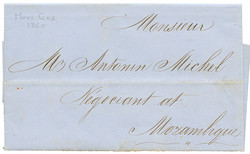 1860
Monsieur
Mr Antonin Michel
Négociant at
Mozambique